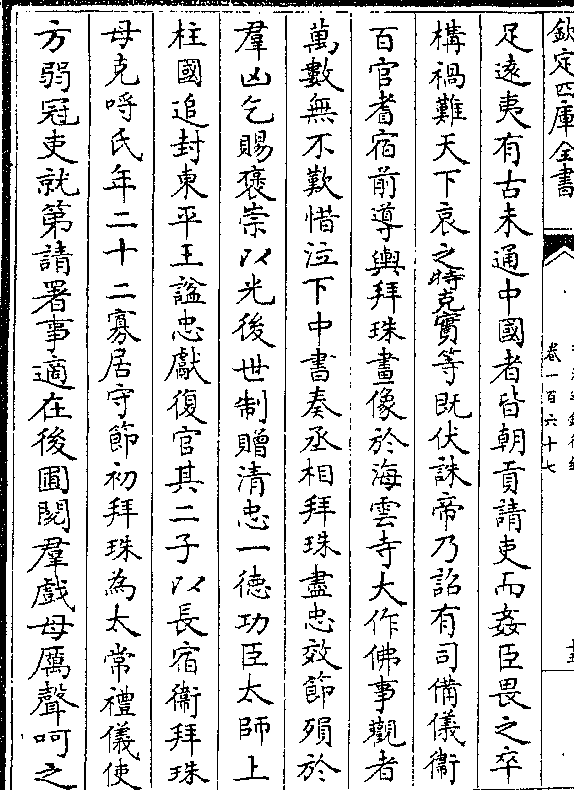 欽定四庫全書
卷一百六十七
足遠夷有古未通中國者皆朝貢請吏而姦臣畏之卒
構禍難天下哀之特克實等既伏誅帝乃詔有司備儀衛
百官耆宿前導輿拜珠畫像於海雲寺大作佛事觀者
萬數無不歎惜泣下中書奏丞相拜珠盡忠效節殞於
羣凶乞賜褒崇以光後世制贈清忠一徳功臣太師上
柱國追封東平王諡忠獻復官其二子以長宿衛拜珠
母克呼氏年二十二寡居守節初拜珠為太常禮儀使
方弱冠吏就第請署事適在後圃閲羣戲母厲聲呵之